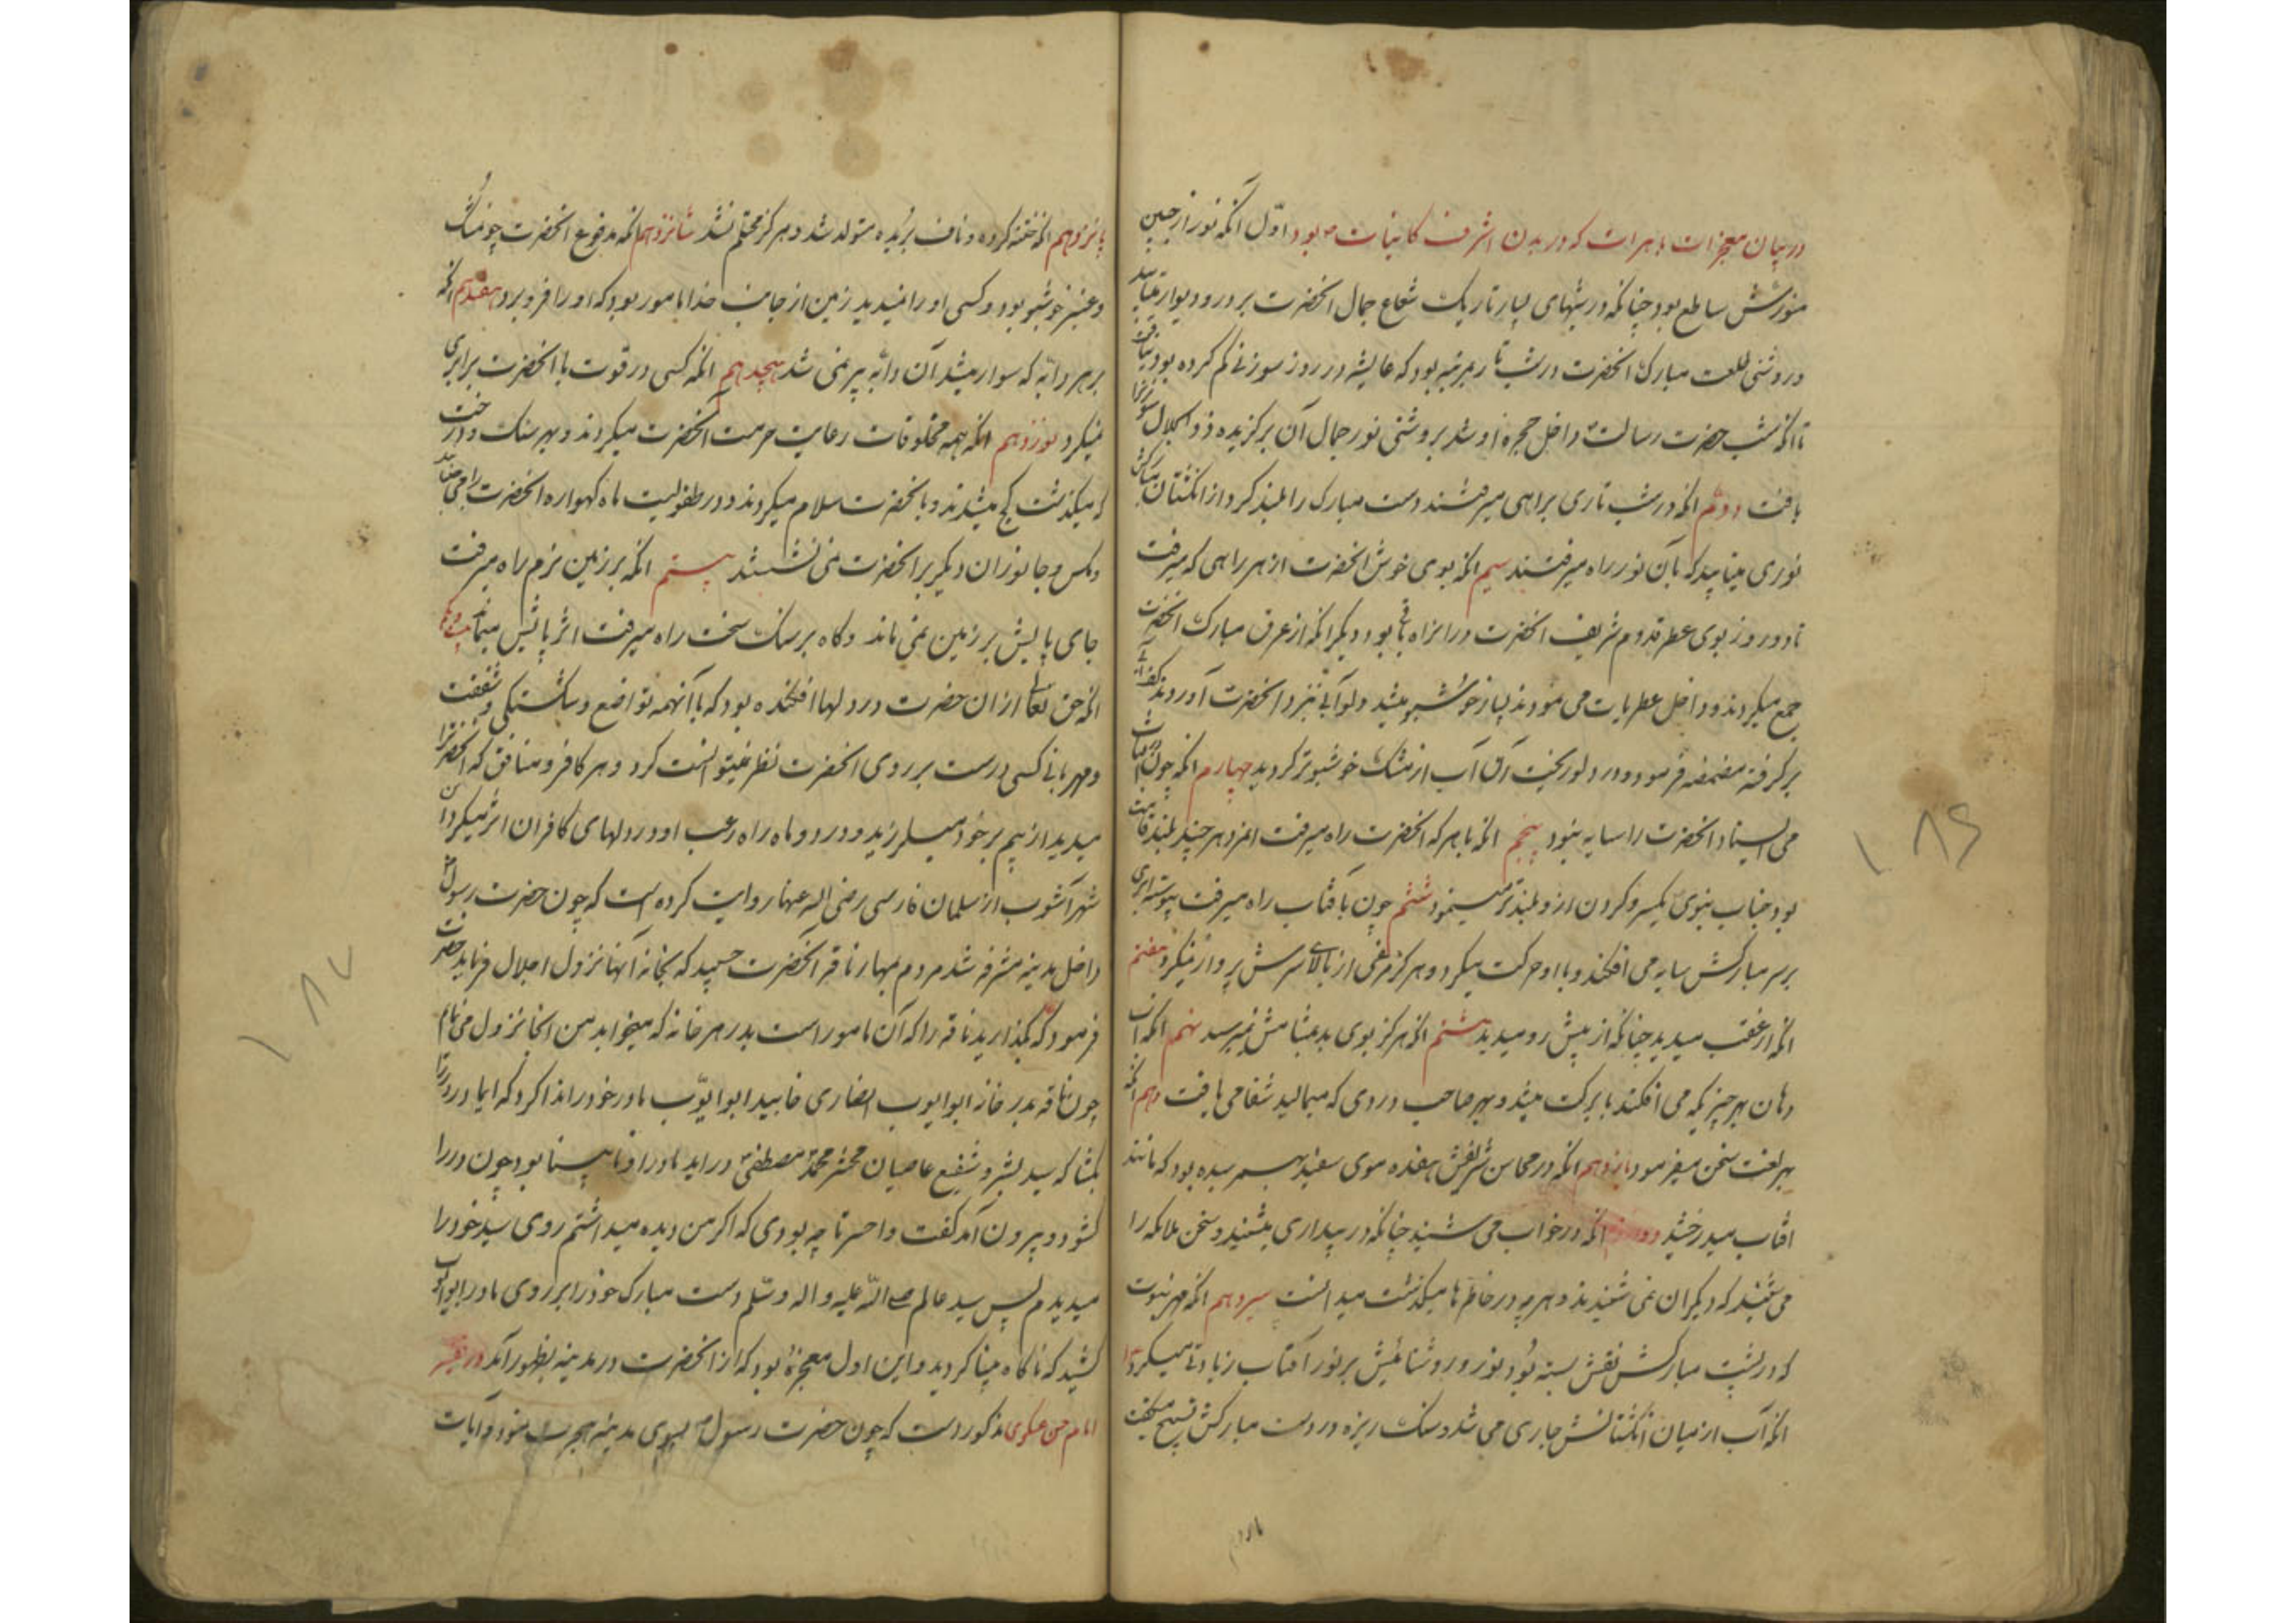 در بیان معجزات باهرات که در بدن اشرف کاینات ص بود اوّل آنکه نور از جبین
منورش ساطع بود چنانکه در شبهای بسیار تاریک شعاع جمال انحضرت بر در و دیوار میتابید
و روشنی طلعت مبارک انحضرت در شب تار بمرتبه بود که عایشه در روز سوزنی کم کرده بود نیافت
تا آنکه شب حضرت رسالت داخل حجره او شد بروشنی نور جمال آن برکزیده ذو الجلال سوزنرا
یافت دوم آنکه در شب تاری براهی میرفتند دست مبارک را بلند کرد از انکشتان مبارکش
نوری میتابید که بآن نور راه میرفتند سیم آنکه بوی خوش انحضرت از هر راهی که میرفت
تا دو روز بوی عطر قدوم شریف انحضرت در انراه باقی بود دیکر آنکه از عرق مبارک انحضرت
جمع میکردند و داخل عطریات می نمودند بسیار خوشبو میشد و دلو آبی نزد انحضرت آوردند کف آبی
برکرفته مضمضه فرموده و در دلو ریخت آن آب از مشک خوشبوتر کردید چهارم آنکه چون در آفتاب
می ایستاد انحضرت را سایه نبود پنجم آنکه با هر که انحضرت راه میرفت انمرد هر چند بلند قامت
بود جناب نبوی یکسر و کردن از او بلندتر مینمود ششم چون بآفتاب راه میرفت پیوسته ابری
بر سر مبارکش سایه می افکند و با او حرکت میکرد و هرکز مرغی از بالای سرش پرواز نمیکرد هفتم
آنکه از عقب میدید چنانکه از پیش رو میدید هشتم آنکه هرکز بوی بد بمشامش نمیرسد نهم آنکه آب
دهان بهر چیزیکه می افکند با برکت میشد و بهر صاحب دردی که میمالید شفا می یافت دهم آنکه
بهر لغت سخن میفرمود یازدهم آنکه در محاسن شریفش هفده موی سفید بهم رسیده بود که مانند
افتاب میدرخشید دوازدهم آنکه در خواب می شنید چنانکه در بیداری میشنید و سخن ملائکه را
می شنید که دیکران نمی شنیدند و هر چه در خاطرها میکذشت میدانست سیزدهم آنکه مهر نبوت
که در پشت مبارکش نقش بسته بود و نور و روشنائیش بر نور آفتاب زیادتی میکرد
آنکه آب از میان انکشتانش جاری می شد و سنک ریزه در دست مبارکش تسبیح میکفت
پانزدهم
۱۸۶
پانزدهم آنکه ختنه کرده و ناف بریده متولد شد و هرکز محتلم نشد شانزدهم آنکه مدفوع انحضرت چون مشک
و عنبر خوشبو بود و کسی او را نمیدید زمین از جانب خدا مامور بود که او را فرو برد هفدهم آنکه
بر هر دابّه که سوار میشد آن دابّه پیر نمی شد هیجدهم آنکه کسی در قوت با انحضرت برابری
نمیکرد نوزدهم آنکه همه مخلوقات رعایت حرمت آنحضرت میکردند و بهر سنک و درخت
که میکذشت کج میشدند و بانحضرت سلام میکردند و در طفولیت ماه کهواره انحضرت را می جنبانید
و مکس و جانوران دیکر بر انحضرت نمی نشستند بیستم آنکه بر زمین نرم راه میرفت
جای پایش بر زمین نمی ماند و کاه بر سنک سخت راه میرفت اثر پایش میماند بیست و یکم
آنکه حق تعالی از آن حضرت در دلها افکنده بود که با آنهمه تواضع و شکستکی و شفقت
و مهربانی کسی درست بر روی انحضرت نظر نمیتوانست کرد و هر کافر و منافق که انحضرترا
میدید از بیم بر خود میلرزید و در دو ماه راه رعب او در دلهای کافران اثر میکرد ابن
شهرآشوب از سلمان فارسی رضی اله عنها روایت کرده است که چون حضرت رسول ص
داخل مدینه مشرفه شد مردم بمهار ناقه آنحضرت چسپید که بخانه آنها نزول اجلال فرماید حضرت
فرمود که بکذارید ناقه را که آن مامور است بدر هر خانه که میخوابد من انجا نزول می نمایم
چون ناقه بدر خانه ابو ایوب انصاری خابید ابو ایوّب مادر خود را ندا کرد که ای مادر در را
بکشا که سید بشر و شفیع عاصیان محشر محمد مصطفی درآید مادر او نابینا بود چون در را
کشود و بیرون آمد کفت وا حسرتا چه بودی که اکر من دیده میداشتم روی سید خود را
میدیدم پس سید عالم صلی اللّه علیه و اله و سلّم دست مبارک خود را بر روی مادر ابو ایوب
کشید که ناکاه بینا کردید و این اول معجزهٔ بود که از انحضرت در مدینه بظهور آمد در تفسیر
امام حسن عسکری مذکور است که چون حضرت رسول ص بسوی مدینه هجرت نمود و آیات
۱۸۷